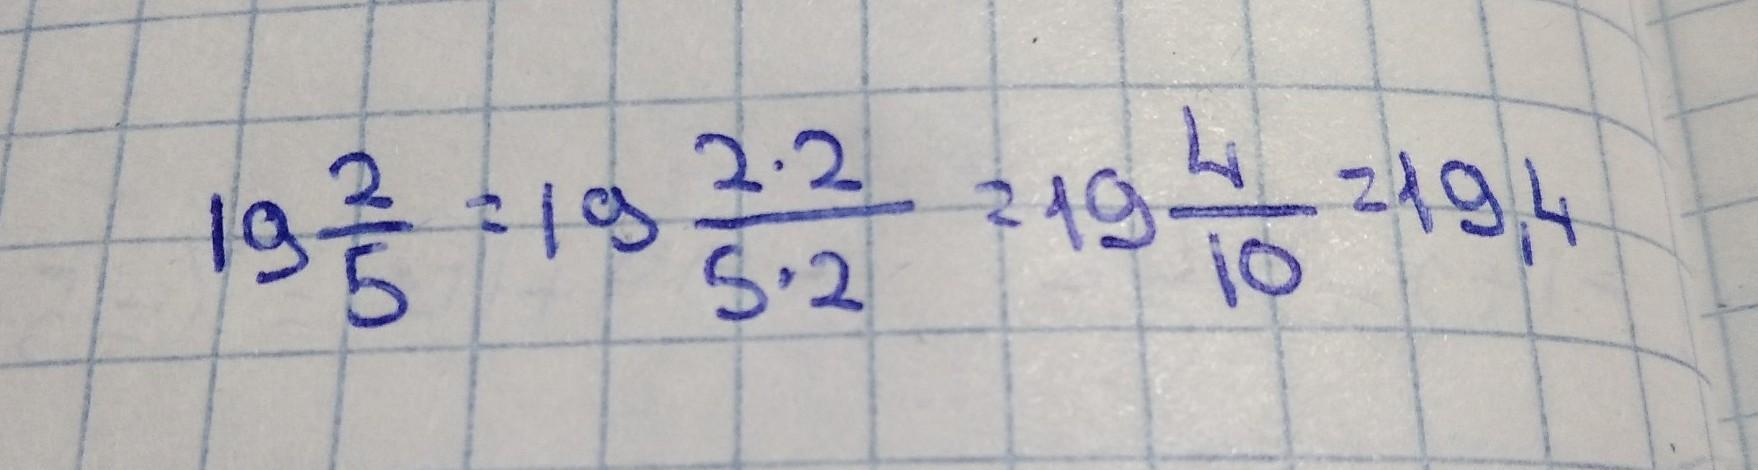 19 2/5 = 19 2·2/5·2 = 19 4/10 = 19,4